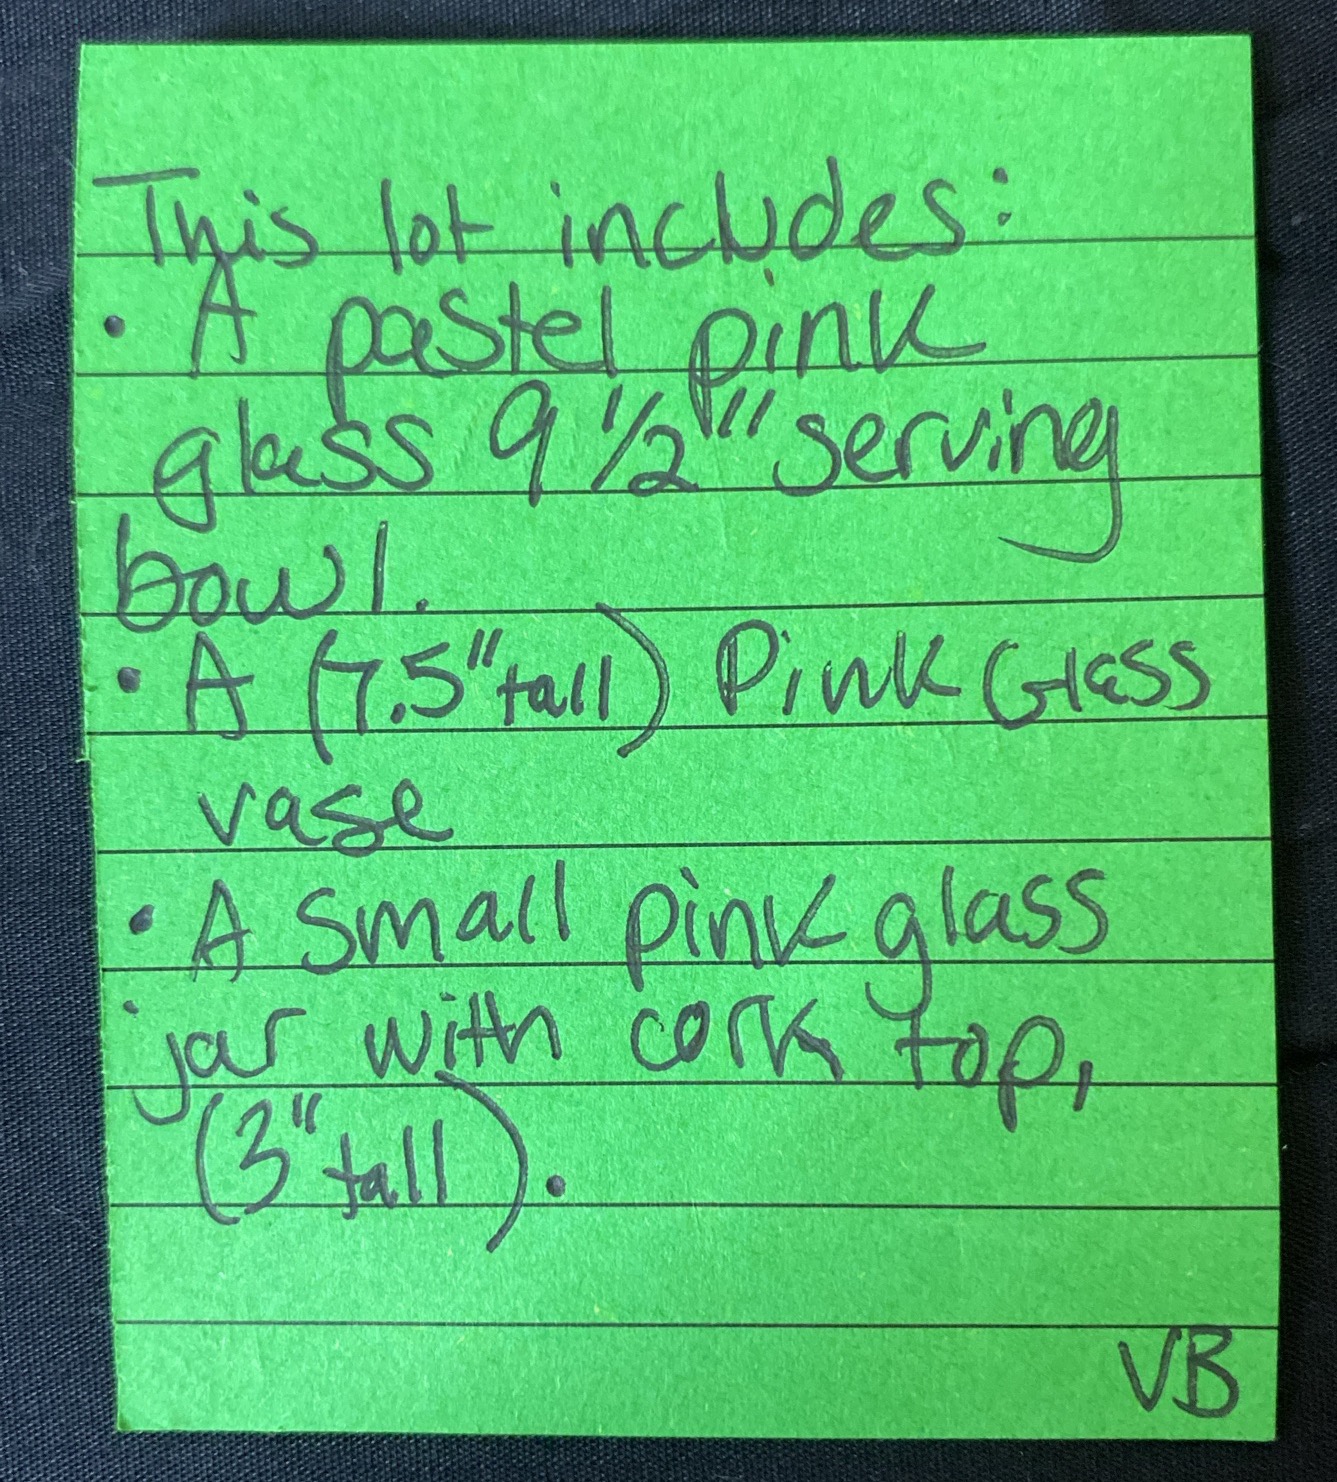 This lot includes:
• A pastel pink
glass 9 1/2" serving
bowl.
• A (7.5" tall) Pink Glass
vase
• A small pink glass
jar with cork top,
(3" tall).
VB